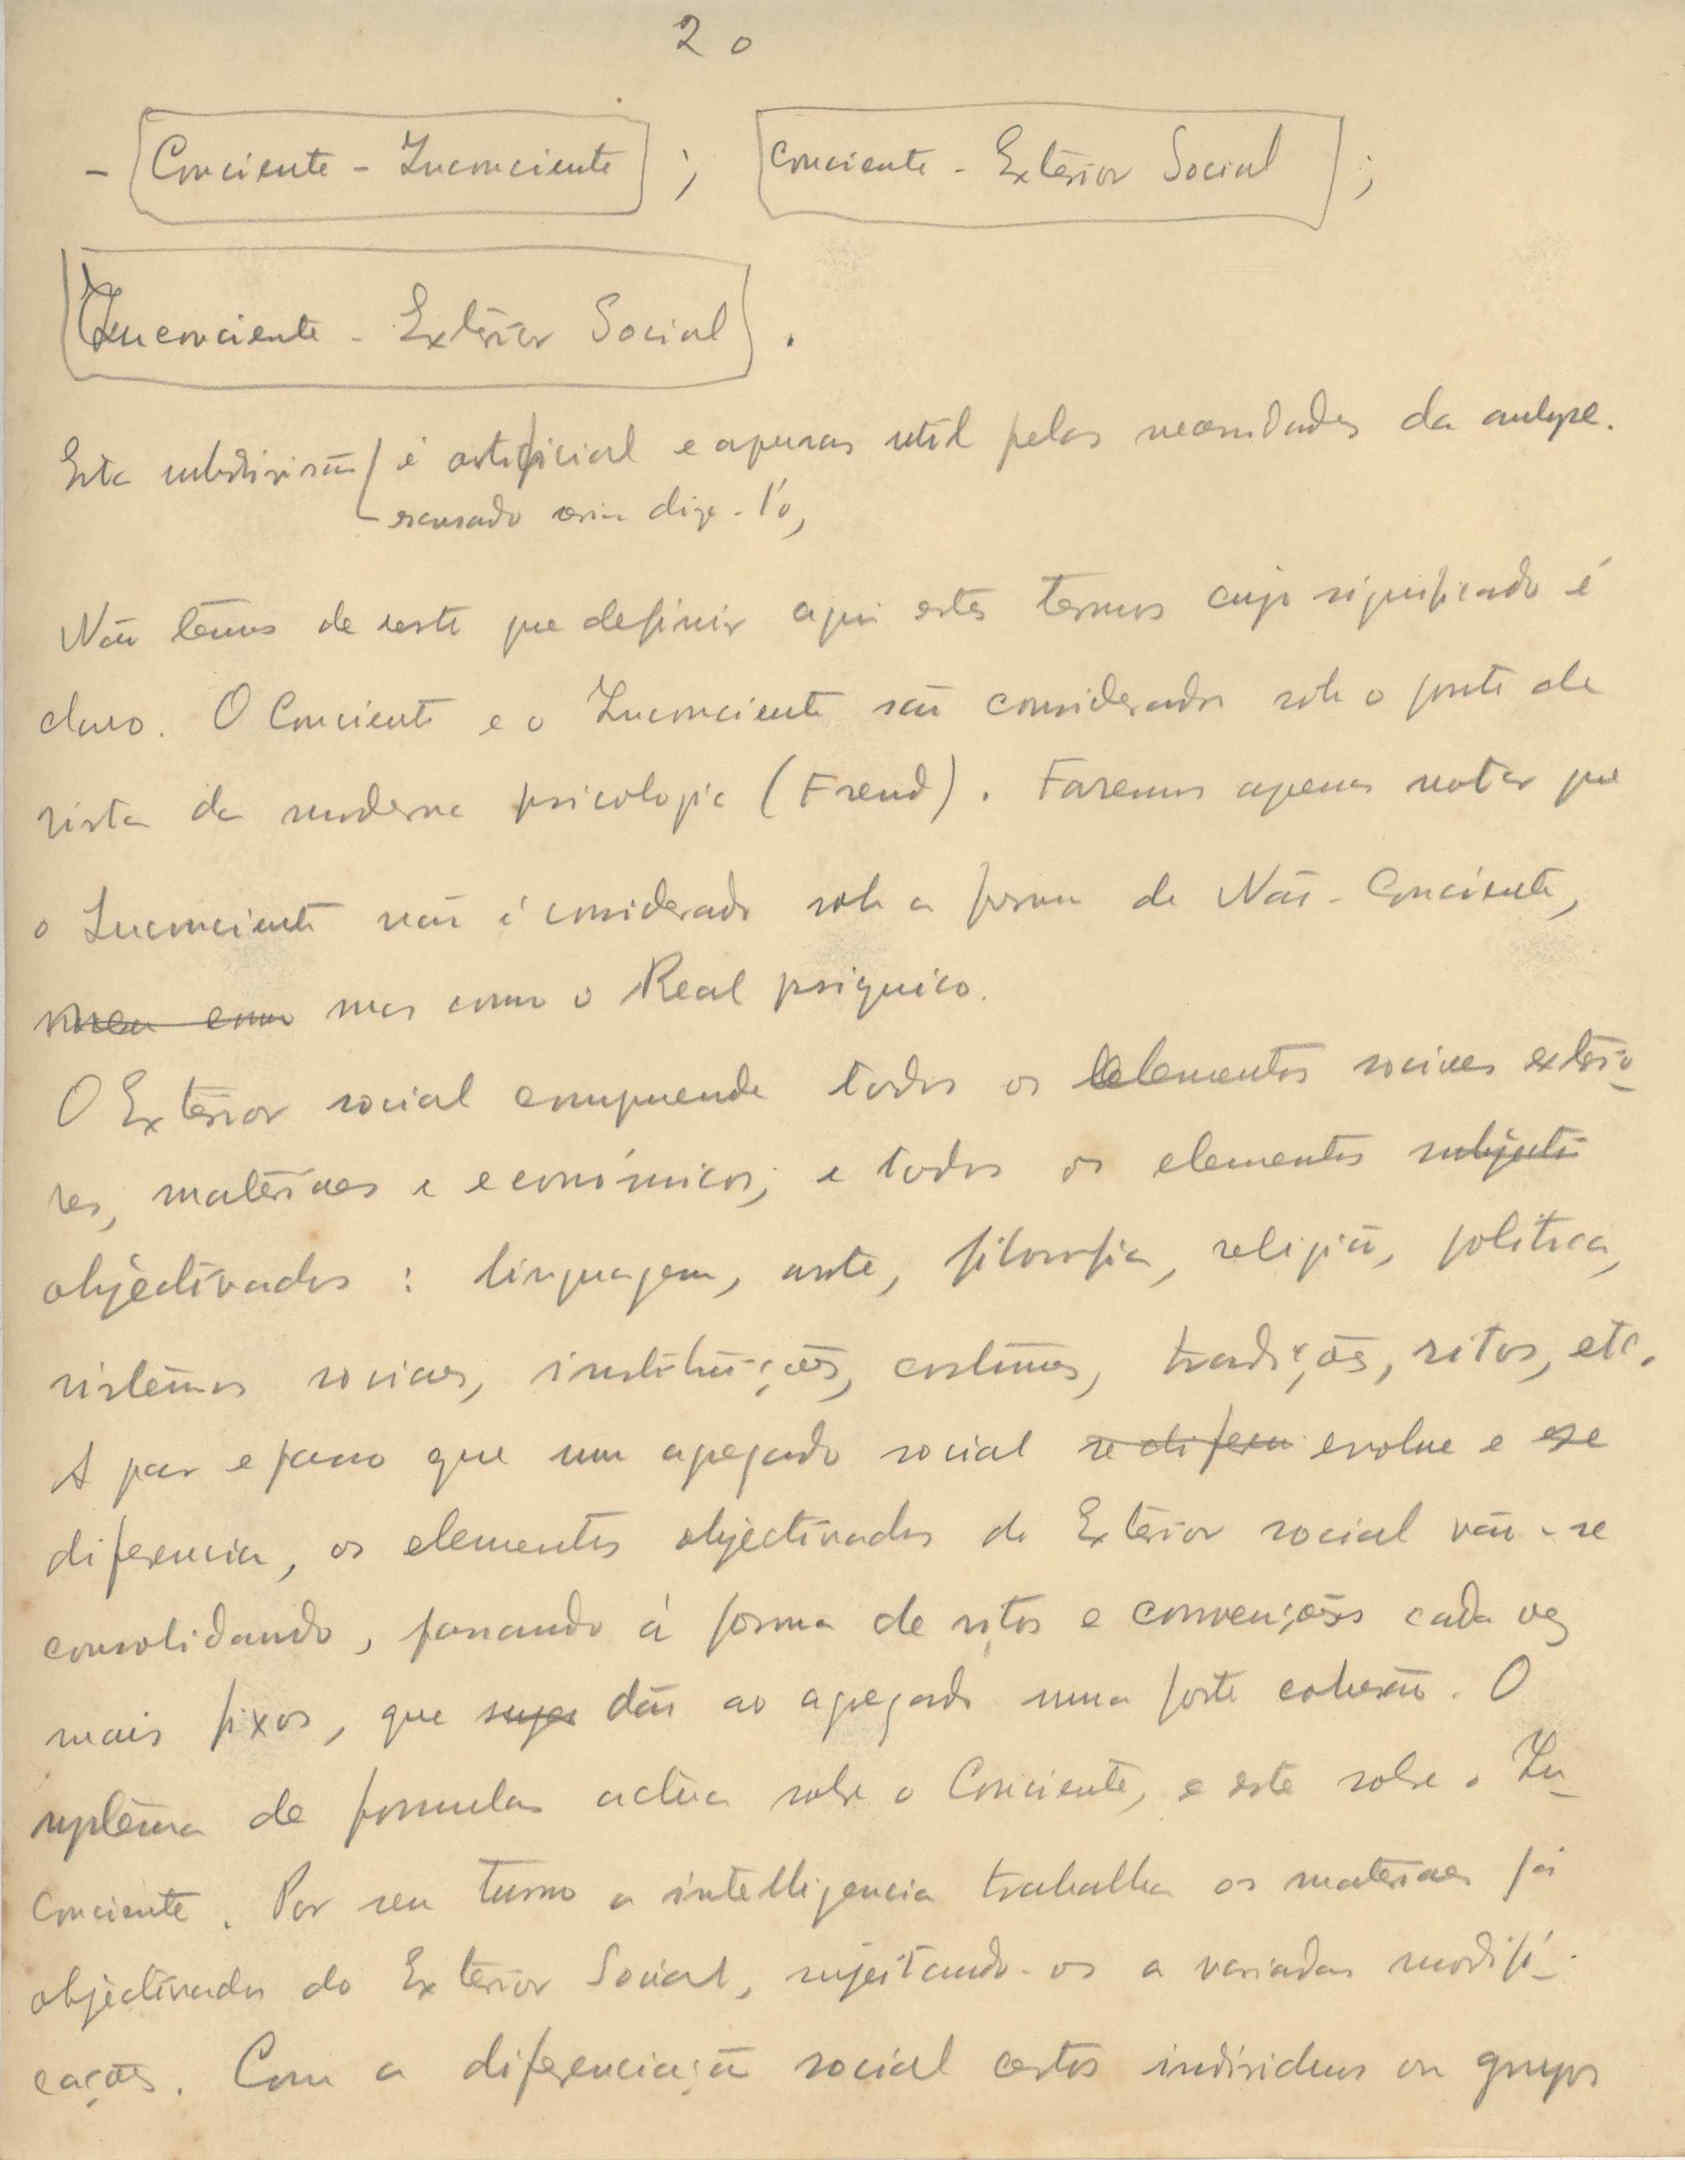 20
- Conciente - Inconciente ; Conciente - Exterior Social ;
Inconciente - Exterior Social .
Esta subdivisão é artificial e apenas util pelas necessidades da analyse.
escusado seria dize-l'o,
Não temos de resto que definir aqui estes termos cujo significado é
claro. O Conciente e o Inconciente são considerados sob o ponto de
vista da moderna psicologia (Freud). Faremos apenas notar que
o Inconciente não é considerado sob a forma de Não-Conciente,
mas como o Real psiquico.
O Exterior social compreende todos os elementos sociaes exterio-
res, materiaes e económicos; e todos os elementos subjecti
objectivados : linguagem, arte, filosofia, religião, politica,
sistemas sociaes, instituições, costumes, tradições, ritos, etc.
A par e passo que um agregado social se diferen evolue e se
diferencia, os elementos objectivados do Exterior social vão-se
consolidando, passando á forma de ritos e convenções cada vez
mais fixos, que dão ao agregado uma forte cohesão. O
systema de formulas actua sobre o Conciente, e este sobre o In-
conciente. Por seu turno a intelligencia trabalha os materiaes já
objectivados do Exterior Social, sujeitando-os a variadas modifi-
cações. Com a diferenciação social certos individuos ou grupos